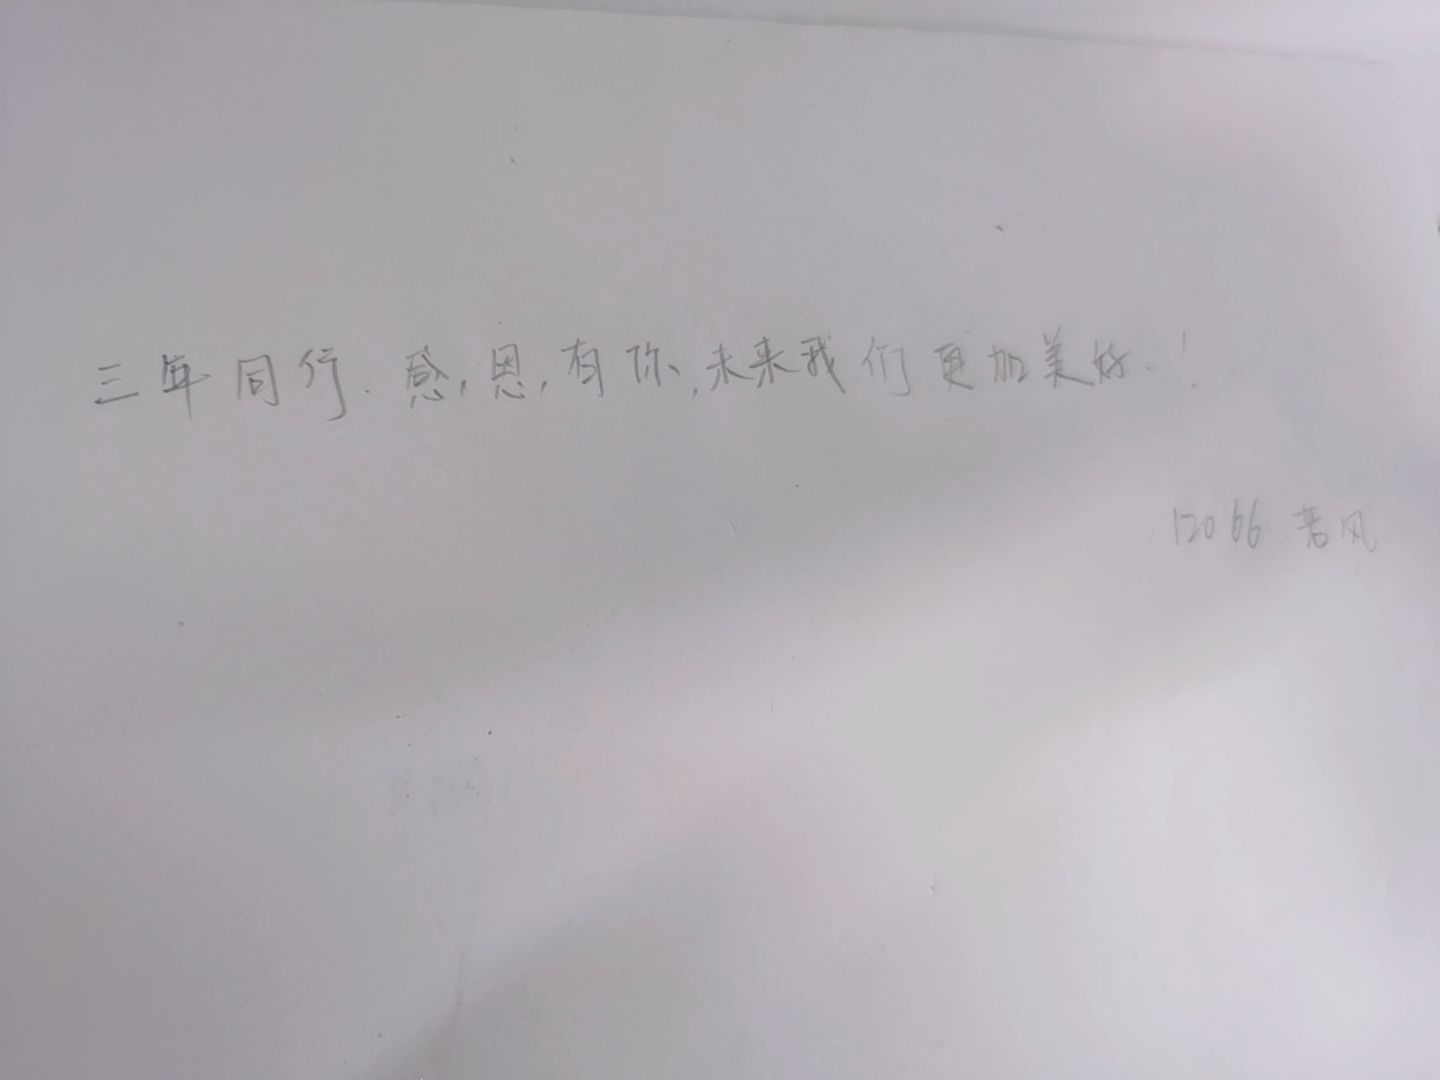 三年同行.感,恩,有你,未来我们更加美好.!
12066 若风